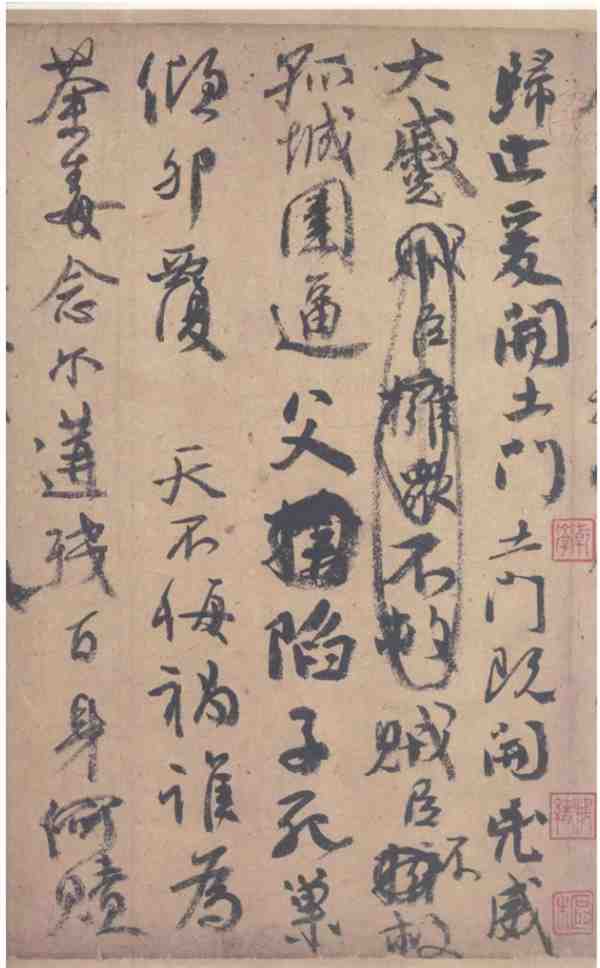 歸止爰開土門土門既開凶威
大蹙賊臣擁衆不救賊臣不擁救
孤城圍逼父陷子死巢
傾卵覆 天不悔禍誰為
荼毒念尓遘殘百身何贖